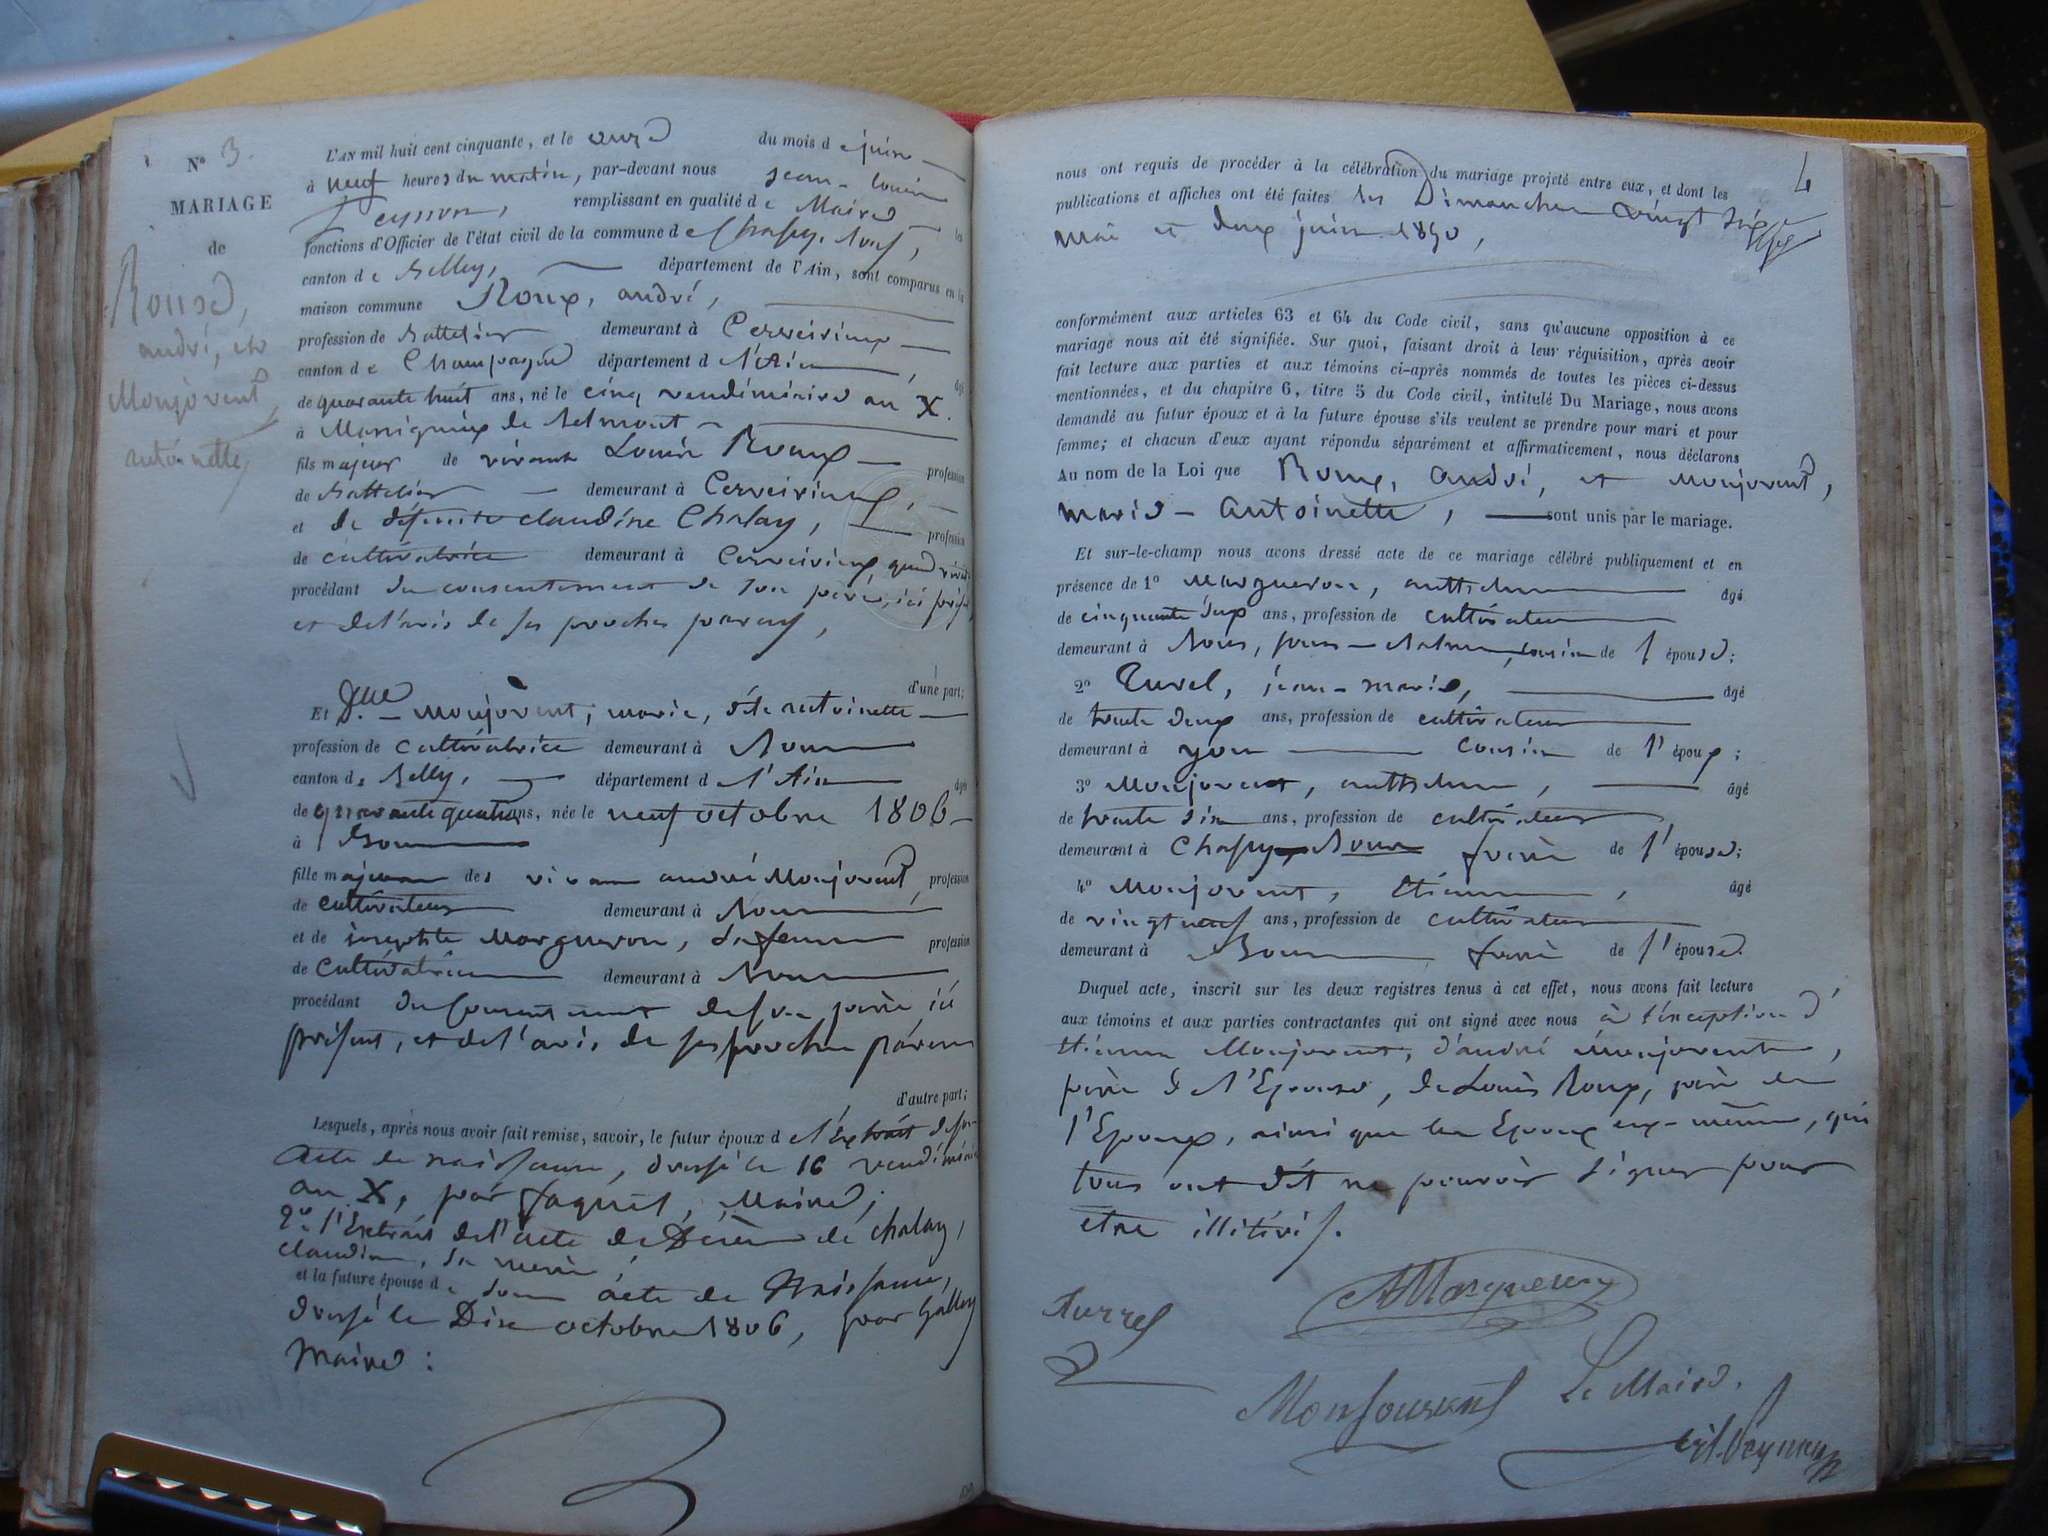 N° 3.
MARIAGE
de
Roux,
andré, et
Monjovent
antoinette,
L'AN mil huit cent cinquante, et le onze du mois de juin
à neuf heures du matin, par-devant nous jean-louis
Peysson, remplissant en qualité de Maire les
fonctions d'Officier de l'état civil de la commune de
canton de Belley, département de l'Ain, sont comparus en la
maison commune Roux, andré,
profession de demeurant à Cerveirieux
canton de Champagne département de l'Ain, âgé
de quarante huit ans, né le cinq vendémiaire an X.
à Massignieux de Belmont
fils majeur de vivant Louis Roux profession
de demeurant à Cerveirieux,
et de défunte claudine Chalay, profession
de cultivatrice demeurant à Cerveirieux, quand vivait
procédant du consentement de son père, ici présent
et de l'avis de ses proches parens,
d'une part;
Et Monjovent, marie, dite antoinette
profession de cultivatrice demeurant à
canton de Belley, département de l'Ain âgée
de quarante quatre ans, née le neuf octobre 1806
à
fille majeure des vivans andré Monjovent, profession
de cultivateur demeurant à
et de josephte Margueron, sa femme profession
de cultivatrice demeurant à
procédant du consentement de son père ici
présent, et de l'avis de ses proches parens
d'autre part;
Lesquels, après nous avoir fait remise, savoir, le futur époux de l'extrait de son
acte de naissance, dressé le 16 vendémiaire
an X, par Jaquet, Maire;
2° l'Extrait de l'acte de Décès de chalay,
claudine, sa mère;
et la future épouse de son acte de Naissance,
dressé le Dix octobre 1806, par
Maire:
4
nous ont requis de procéder à la célébration du mariage projeté entre eux, et dont les
publications et affiches ont été faites les Dimanches vingt six
mai et deux juin 1850,
conformément aux articles 63 et 64 du Code civil, sans qu'aucune opposition à ce
mariage nous ait été signifiée. Sur quoi, faisant droit à leur réquisition, après avoir
fait lecture aux parties et aux témoins ci-après nommés de toutes les pièces ci-dessus
mentionnées, et du chapitre 6, titre 5 du Code civil, intitulé Du Mariage, nous avons
demandé au futur époux et à la future épouse s'ils veulent se prendre pour mari et pour
femme; et chacun d'eux ayant répondu séparément et affirmativement, nous déclarons
Au nom de la Loi que Roux, andré, et Monjovent,
marie-Antoinette, sont unis par le mariage.
Et sur-le-champ nous avons dressé acte de ce mariage célébré publiquement et en
présence de 1° Margueron, anthelme âgé
de cinquante deux ans, profession de cultivateur
demeurant à cousin de l'épouse;
2° jean-marie, âgé
de trente deux ans, profession de cultivateur
demeurant à yon cousin de l'époux;
3° Monjovent, anthelme, âgé
de trente six ans, profession de cultivateur
demeurant à frère de l'épouse;
4° Monjovent, étienne, âgé
de vingt neuf ans, profession de cultivateur
demeurant à frère de l'épouse.
Duquel acte, inscrit sur les deux registres tenus à cet effet, nous avons fait lecture
aux témoins et aux parties contractantes qui ont signé avec nous à l'exception d'
étienne Monjovent, d'andré Monjovent,
père de l'Epouse, de Louis Roux, père de
l'Epoux, ainsi que les Epoux eux-même, qui
tous ont dit ne pouvoir signer pour
être illitérés.
AMargueron
Monjouvent
Le Maire.